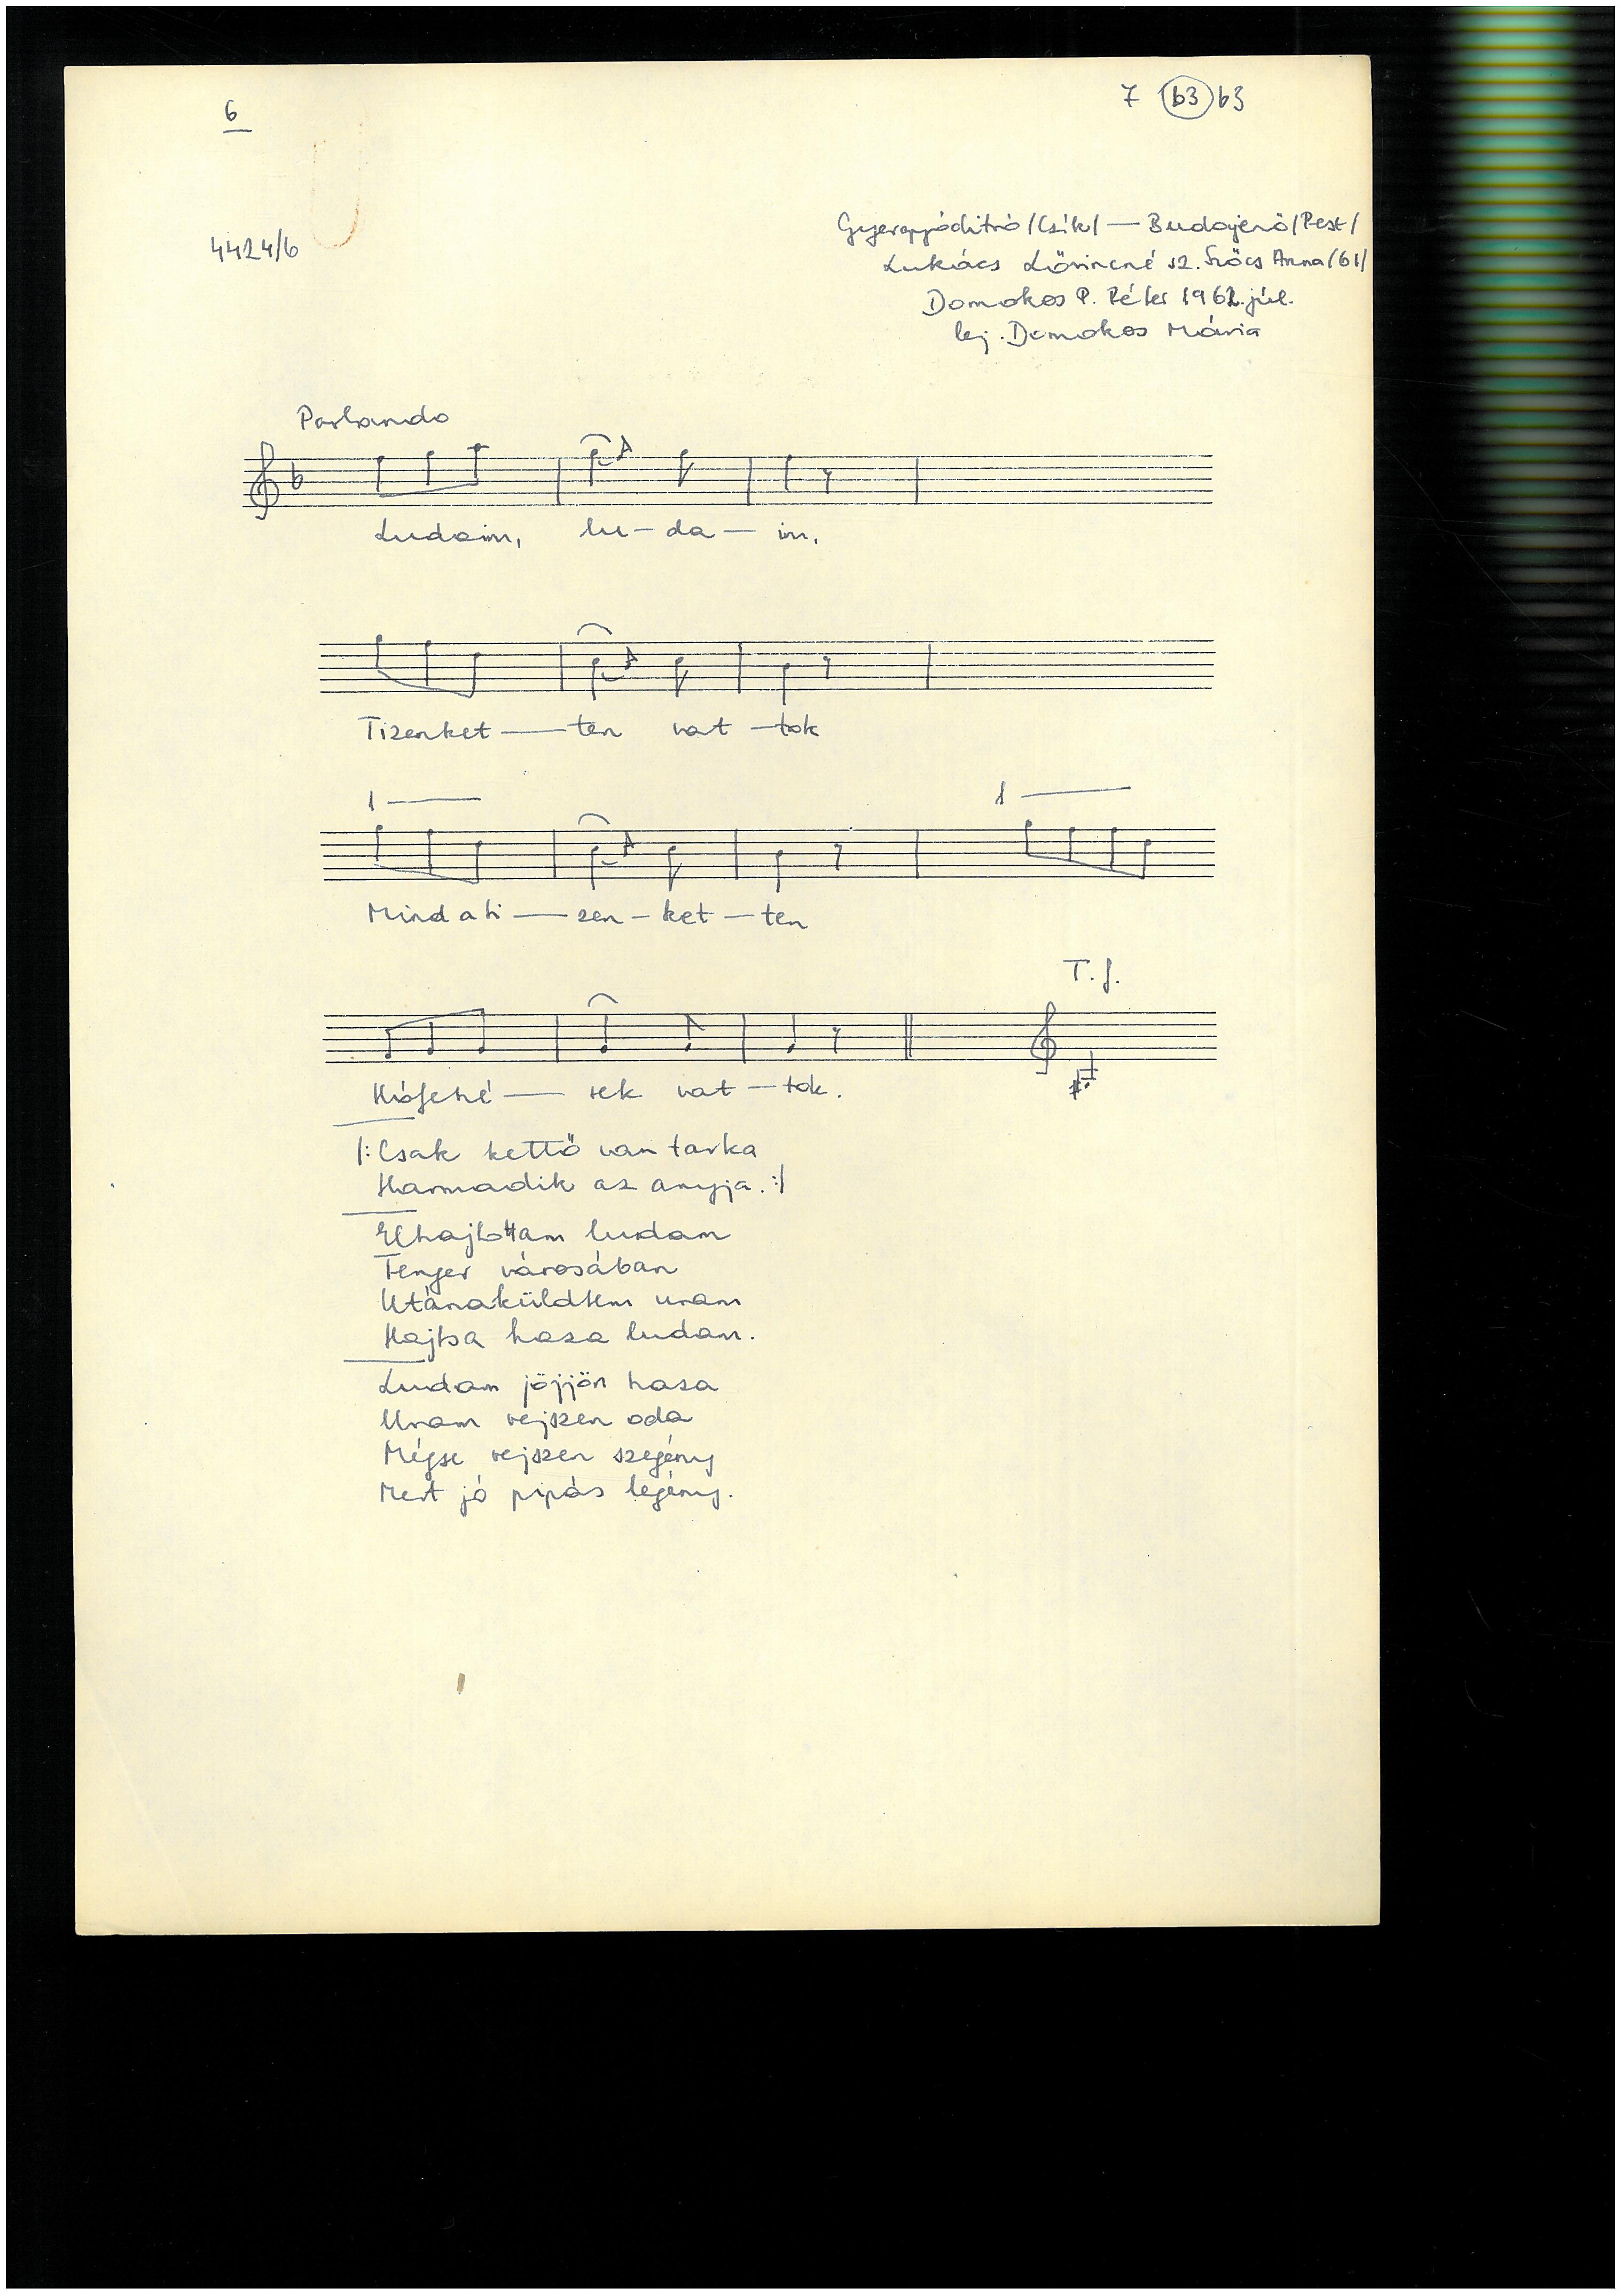 6
7 (b3) b3
4424/6
Gyergyóditró /Csík/ — Budajenő /Pest/
Lukács Lőrincné sz. Szőcs Anna /61/
Domokos P. Péter 1962. júl.
lej. Domokos Mária
Parlando
Ludaim, lu — da — im,
Tizenket — ten vat — tok
1
1
Mind a ti — zen — ket — ten
T. f.
Hófehé — rek vat — tok.
/: Csak kettő van tarka
Harmadik az anyja. :/
Elhajtottam ludam
Tenger városában
Utánaküldtem uram
Hajtsa haza ludam.
Ludam jöjjön haza
Uram vejszen oda
Mégse vejszen szegény
Mert jó pipás legény.